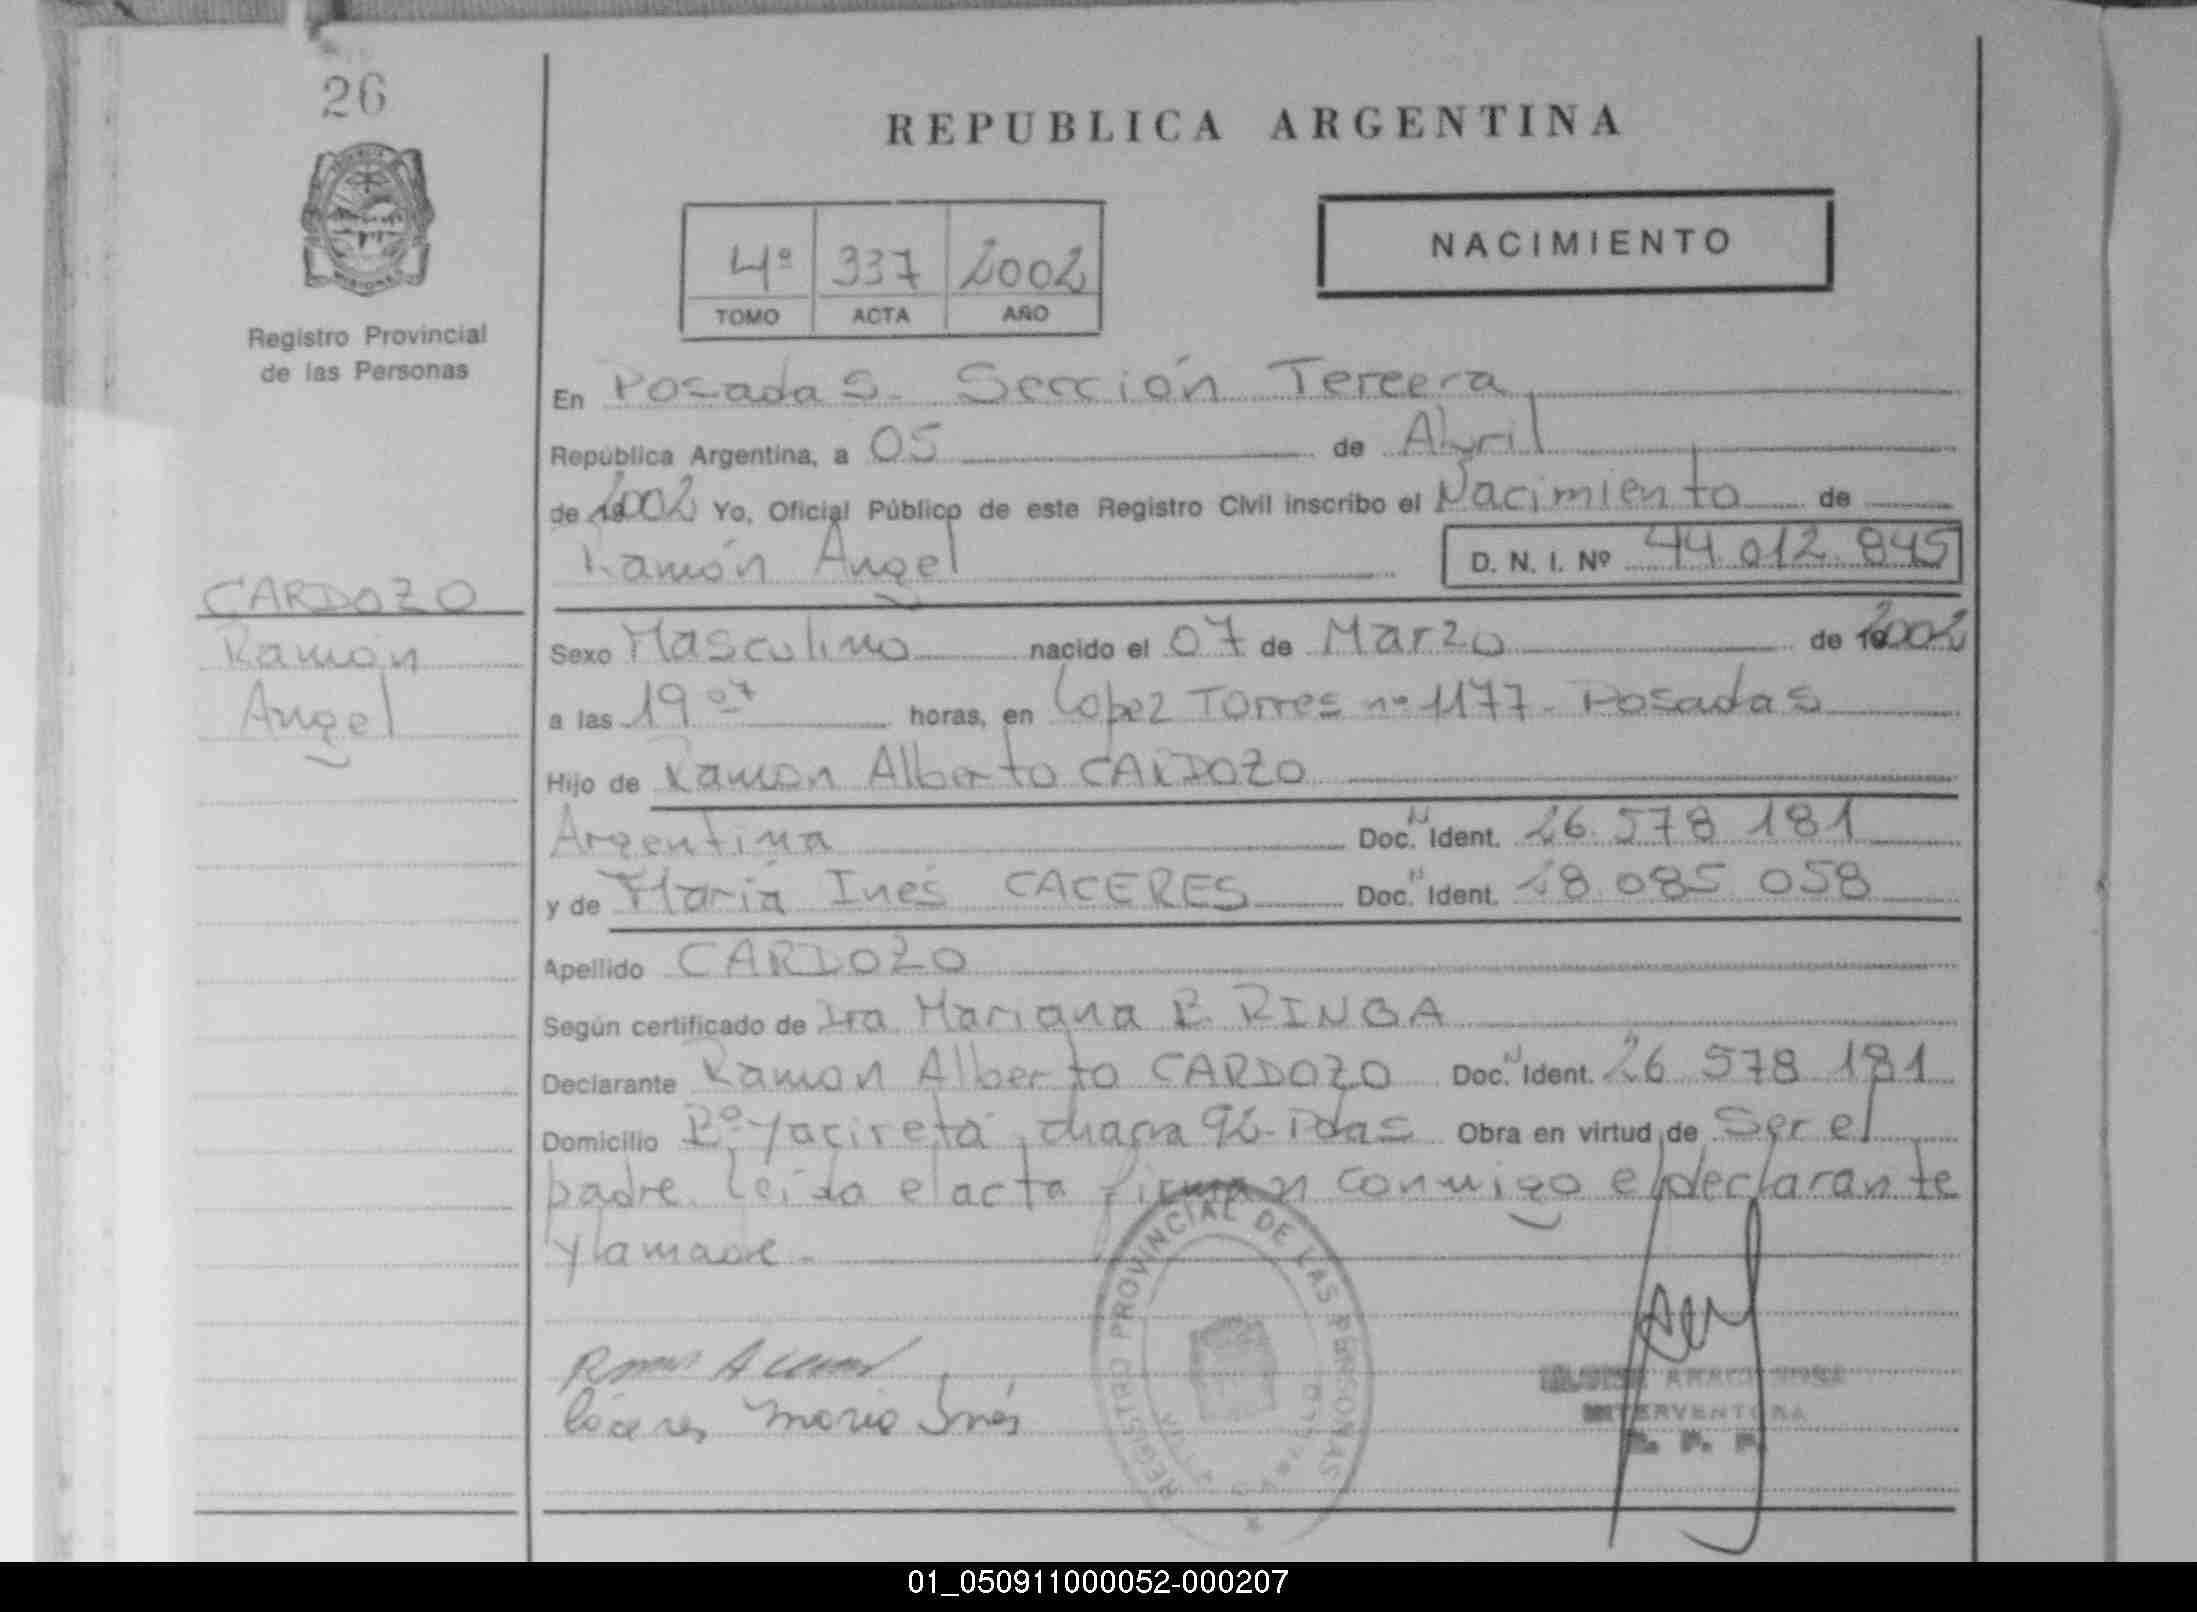 26
REPUBLICA ARGENTINA
NACIMIENTO
4º 337 2002
TOMO ACTA AÑO
Registro Provincial
de las Personas
En Posadas. Sección Tercera
República Argentina, a 05 de Abril
de 2002 Yo, Oficial Público de este Registro Civil inscribo el Nacimiento de
Ramón Angel D. N. I. Nº 44.012.845
CARDOZO
Ramón
Angel
Sexo Masculino nacido el 07 de Marzo de 2002
a las 19 07 horas, en Lopez Torres nº 1177 - Posadas
Hijo de Ramon Alberto CARDOZO
Argentina Doc. N Ident. 26.578.181
y de Maria Ines CACERES Doc. N Ident. 18.085.058
Apellido CARDOZO
Según certificado de Dra Mariana B.
Declarante Ramon Alberto CARDOZO Doc. N Ident. 26 578 181
Domicilio Bº Yaciretá, chacra Pdas Obra en virtud de Ser el
padre. leída el acta firman conmigo el declarante
y la madre.
REGISTRO PROVINCIAL DE LAS PERSONAS
Cáceres Maria Inés
INTERVENTORA
R. P. P.
01_050911000052-000207